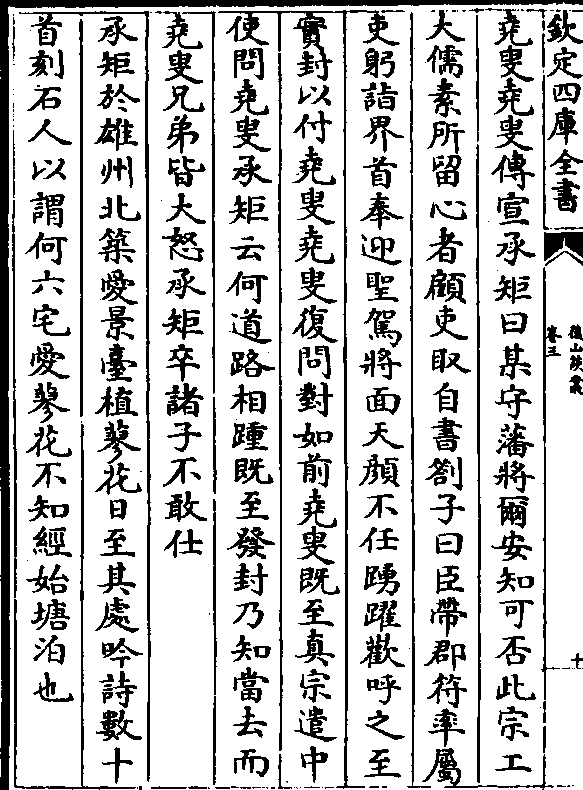 欽定四庫全書
後山談叢
卷三
十
堯叟堯叟傳宣承矩曰某守藩將爾安知可否此宗工
大儒素所留心者顧吏取自書劄子曰臣帶郡符率屬
吏躬詣界首奉迎聖駕將面天顔不任踴躍歡呼之至
實封以付堯叟堯叟復問對如前堯叟既至真宗遣中
使問堯叟承矩云何道路相踵既至發封乃知當去而
堯叟兄弟皆大怒承矩卒諸子不敢仕
承矩於雄州北築愛景臺植蓼花日至其處吟詩數十
首刻石人以謂何六宅愛蓼花不知經始塘泊也